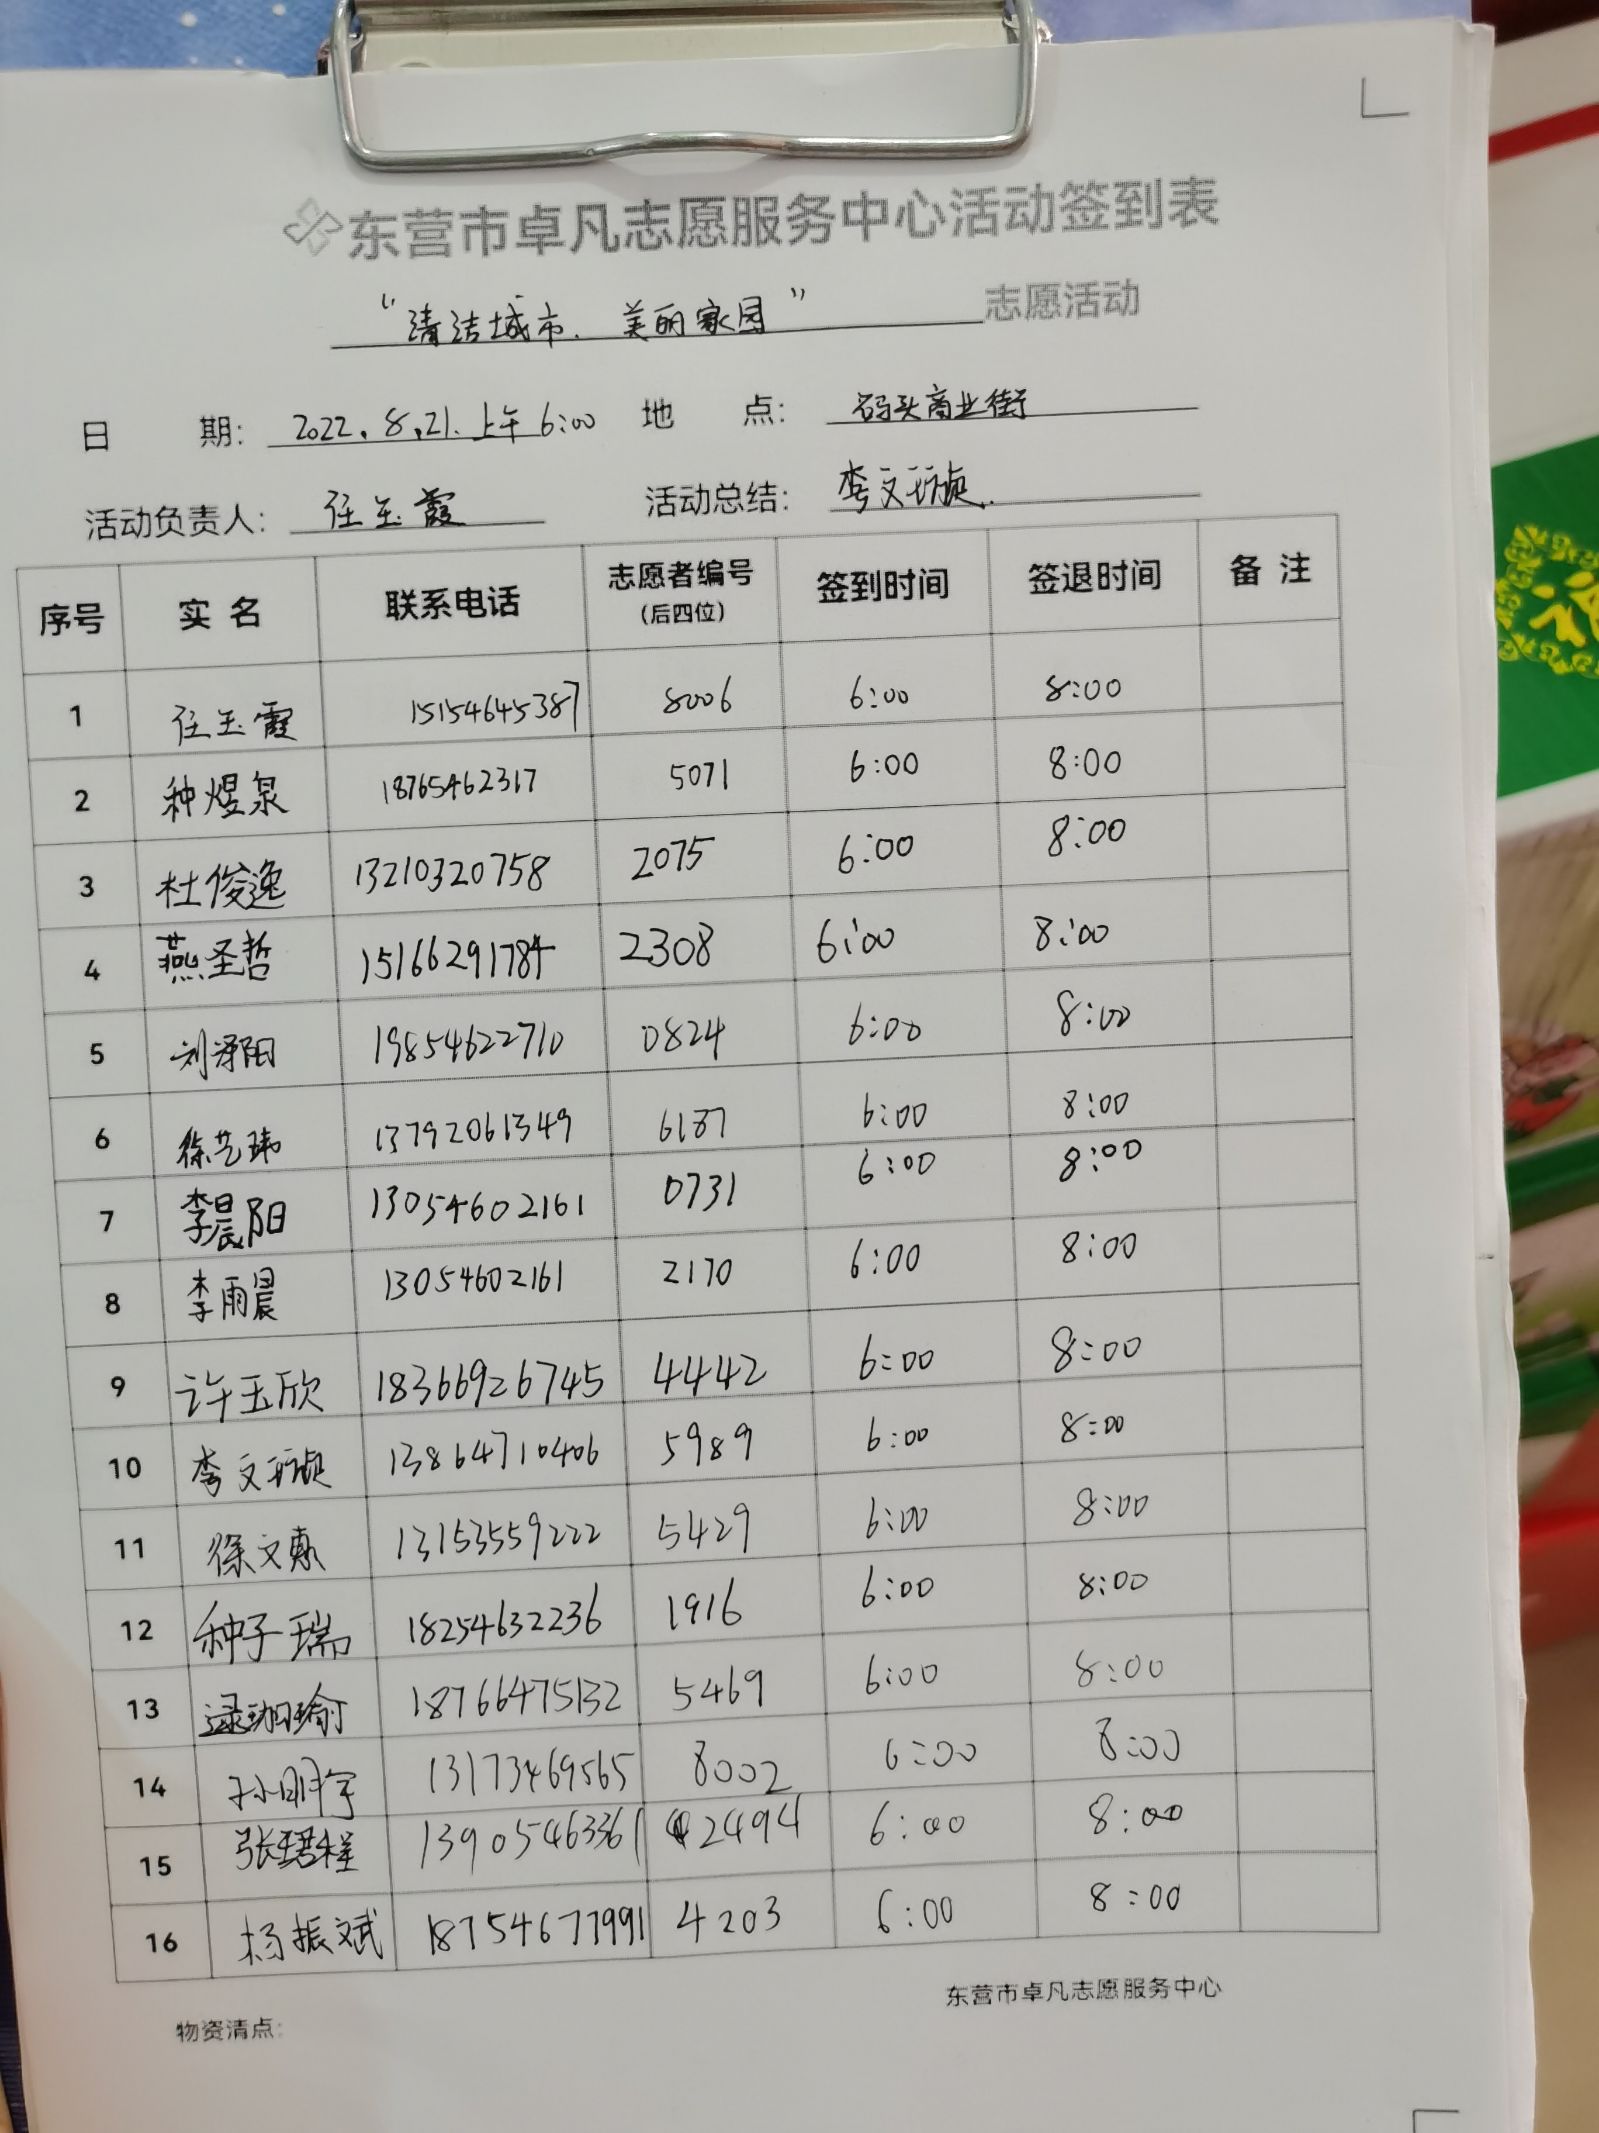 东营市卓凡志愿服务中心活动签到表
“清洁城市、美丽家园” 志愿活动
日 期： 2022.8.21.上午6:00 地 点： 码头商业街
活动负责人： 任玉霞 活动总结： 李文祯
序号 实名 联系电话 志愿者编号（后四位） 签到时间 签退时间 备注
1 任玉霞 15154645387 8006 6:00 8:00
2 种煜泉 18765462317 5071 6:00 8:00
3 杜俊逸 13210320758 2075 6:00 8:00
4 燕圣哲 15166291784 2308 6:00 8:00
5 刘泽阳 19854622710 0824 6:00 8:00
6 徐艺玮 13792061349 6187 6:00 8:00
7 李晨阳 13054602161 0731 6:00 8:00
8 李雨晨 13054602161 2170 6:00 8:00
9 许玉欣 18366926745 4442 6:00 8:00
10 李文 13864710406 5989 6:00 8:00
11 徐文 13153559222 5429 6:00 8:00
12 种子瑞 18254632236 1916 6:00 8:00
13 逯珈瑜 18766475132 5469 6:00 8:00
14 孙明宇 13173469565 8002 6:00 8:00
15 张珺程 13905463361 2494 6:00 8:00
16 杨振斌 18754677991 4203 6:00 8:00
东营市卓凡志愿服务中心
物资清点：